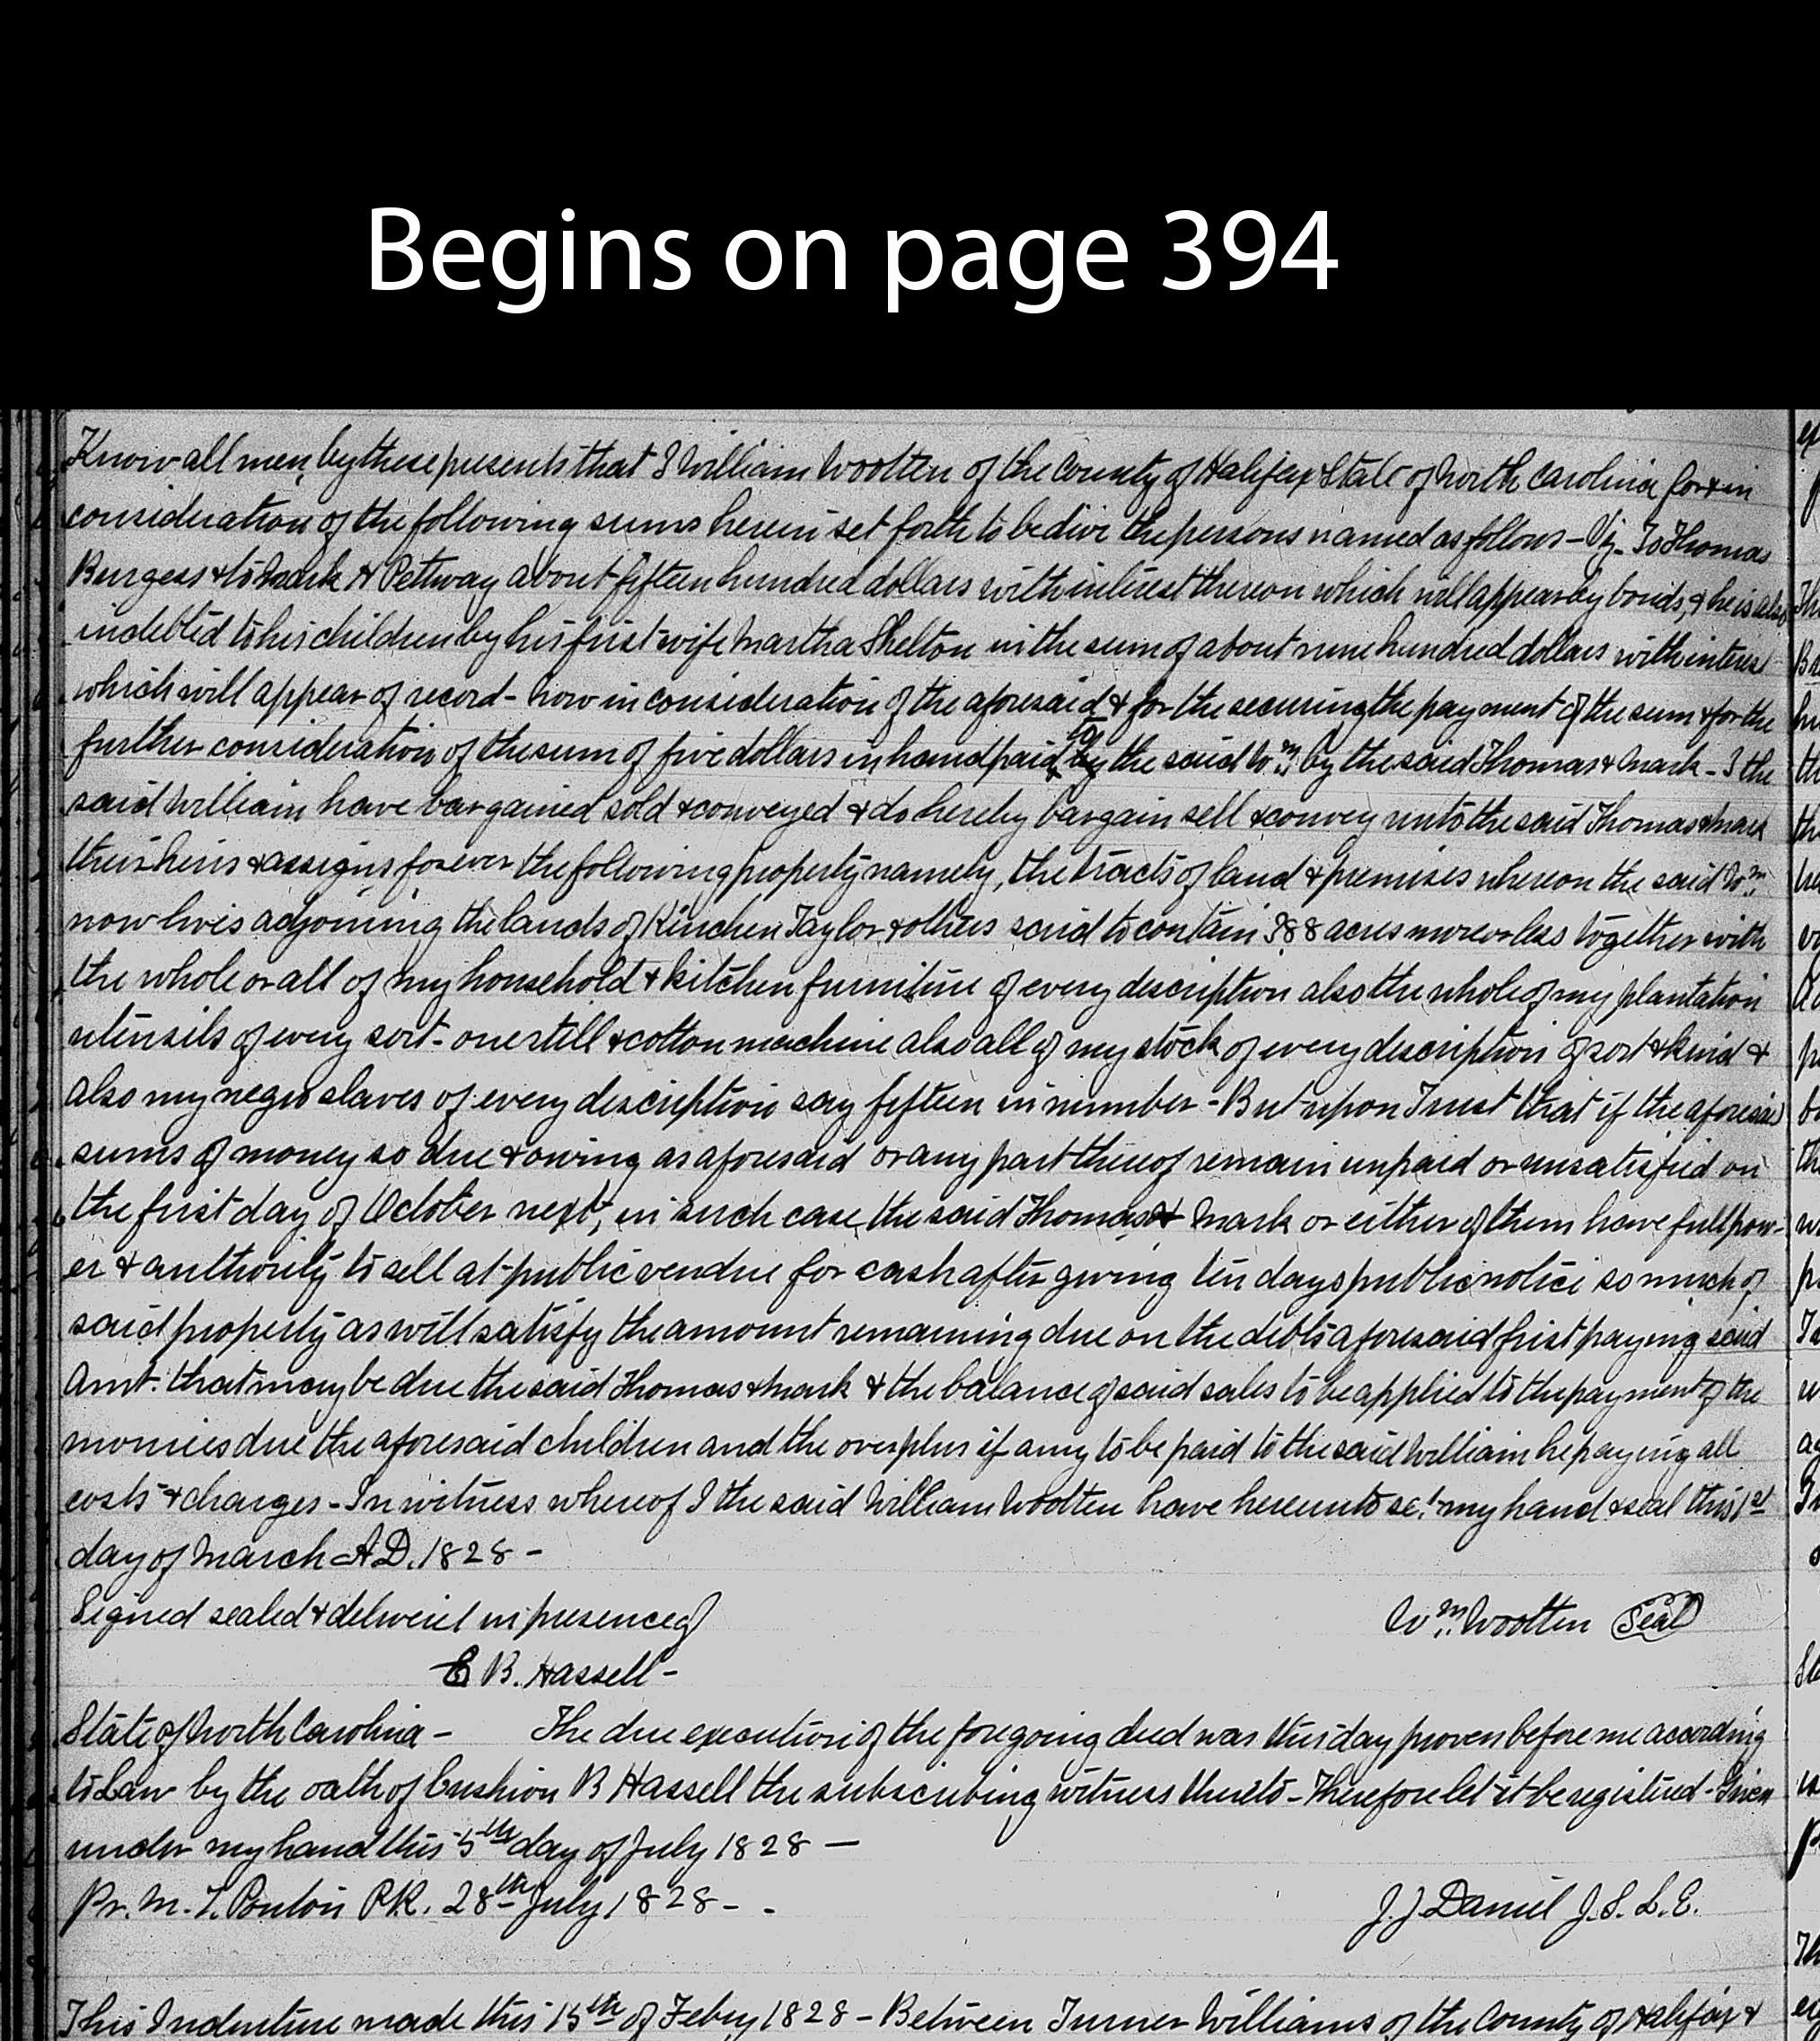 Begins on page 394
Know all men by these presents that I William Wootten of the County of Halifax & State of North Carolina for & in
consideration of the following sums herein set forth to be due the persons named as follows - Viz - To Thomas
Burgess & to Mark H Pettway about fifteen hundred dollars with interest thereon which will appear by bonds, & he is also
indebted to his children by his first wife Martha Shelton in the sum of about nine hundred dollars with interest
which will appear of record - now in consideration of the aforesaid & for the securing the payment of the sum & for the
further consideration of the sum of five dollars in hand paid to the said Wm. by the said Thomas & Mark - I the
said William have bargained sold & conveyed & do hereby bargain sell & convey unto the said Thomas & Mark
their heirs & assigns forever the following property namely, the tracts of land & premises whereon the said Wm.
now lives adjoining the lands of Kinchen Taylor & others said to contain 388 acres more or less together with
the whole or all of my household & kitchen furniture of every description also the whole of my plantation
utensils of every sort - one still & cotton machine also all of my stock of every description of sort & kind &
also my negro slaves of every description say fifteen in number - But upon Trust that if the aforesaid
sums of money so due & owing as aforesaid or any part thereof remain unpaid or unsatisfied on
the first day of October next, in such case the said Thomas & Mark or either of them have full pow-
er & authority to sell at public vendue for cash after giving ten days public notice so much of
said property as will satisfy the amount remaining due on the debts aforesaid first paying said
Amt. that may be due the said Thomas & Mark & the balance of said sales to be applied to the payment of the
monies due the aforesaid children and the overplus if any to be paid to the said William he paying all
costs & charges - In witness whereof I the said William Wootten have hereunto set my hand & seal this 1st
day of March A.D. 1828 -
Signed sealed & delivered in presence of
Wm. Wootten Seal
C B. Hassell -
State of North Carolina - The due execution of the foregoing deed was this day proven before me according
to Law by the oath of Cushion B Hassell the subscribing witness thereto - Therefore let it be registered - Given
under my hand this 5th day of July 1828 -
Pr. M. T. Ponton P.R. 28th July 1828 - -
J. J. Daniel J. S. L. E.
This Indenture made this 15th of Feby 1828 - Between Turner Williams of the County of Halifax &